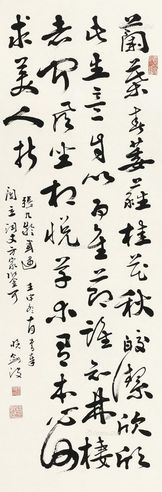 蘭葉春葳蕤桂花秋皎潔欣欣
此生意自爾為佳節誰知林棲
者聞風坐相悅草木有本心何
求美人折
張九齡感遇